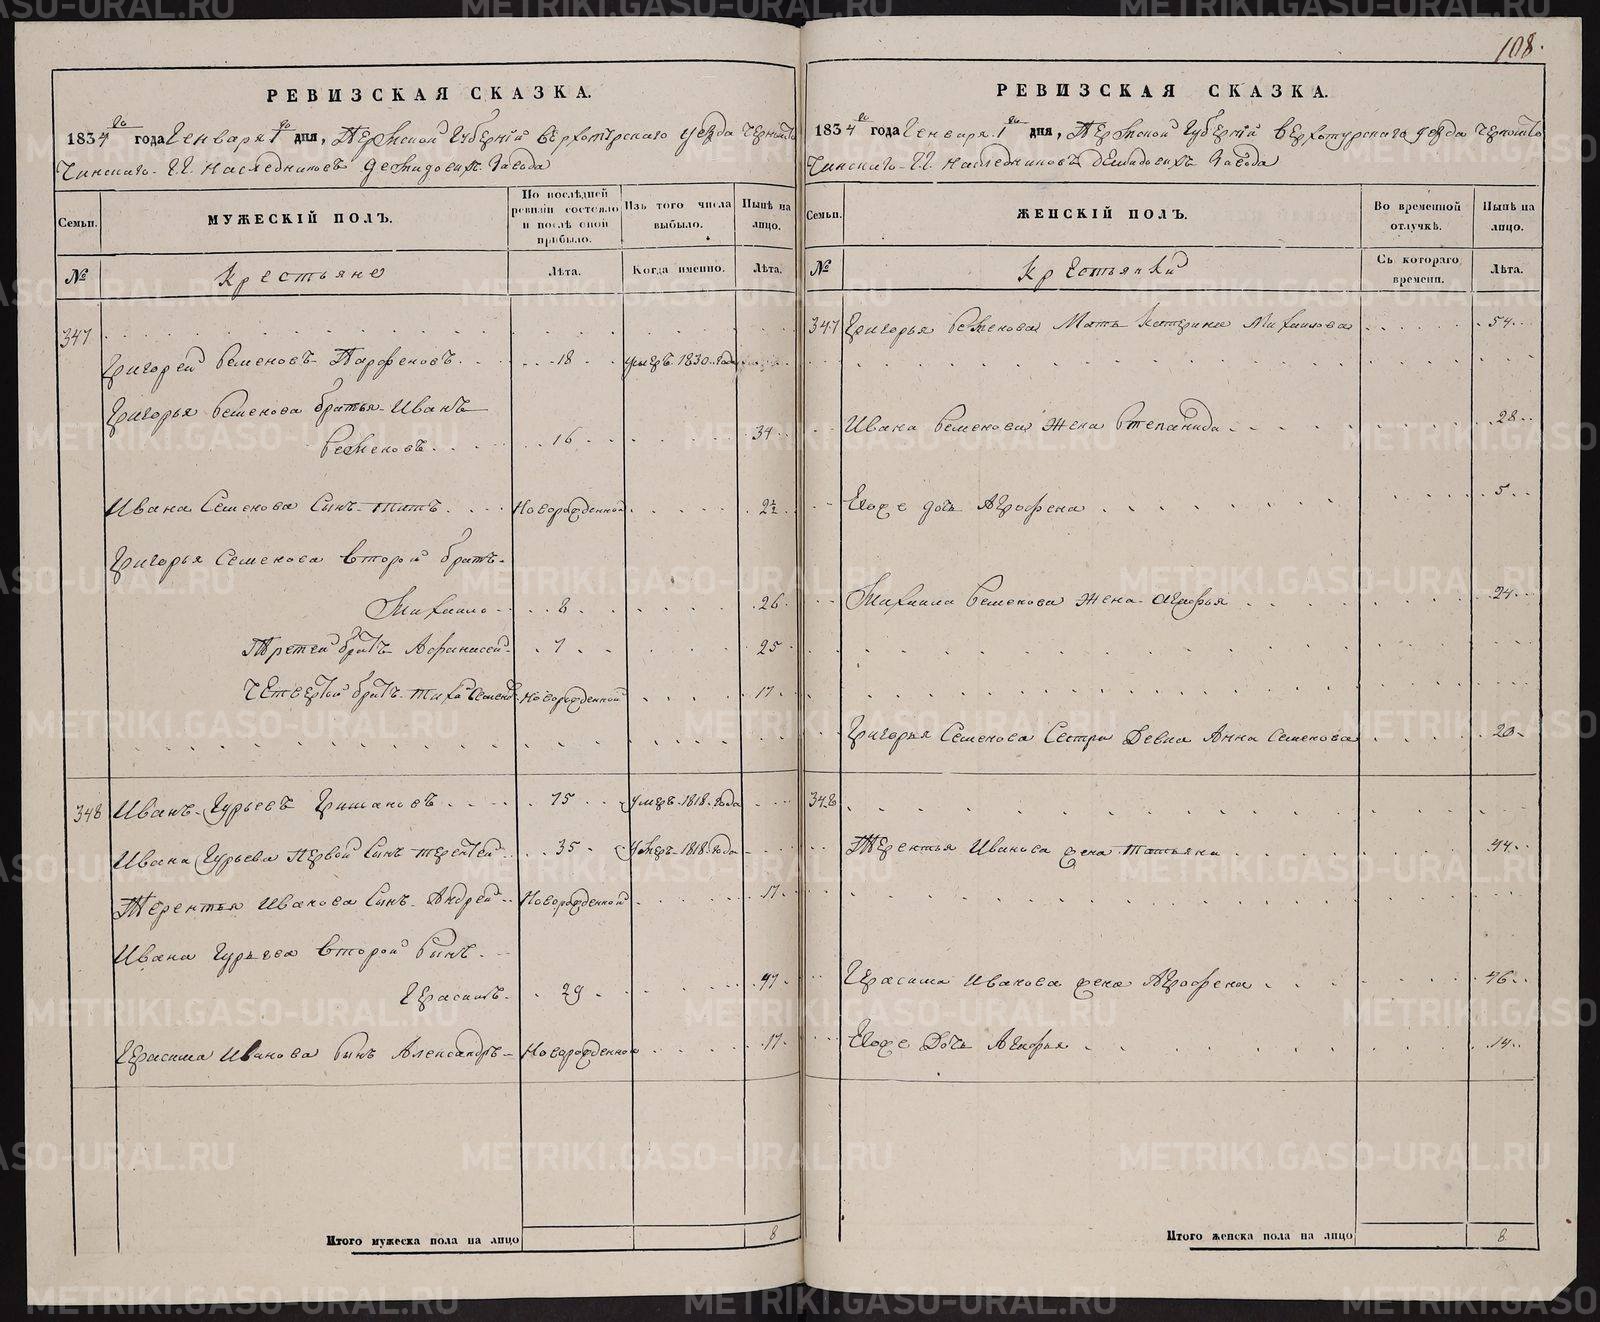 108.
РЕВИЗСКАЯ СКАЗКА.
1834го года Генваря 1го дня, Пермской Губернiи Верхотурскаго уезда Черноисто
чинскаго Г.Г. Наследниковъ Демидовыхъ Завода
Семьи.
МУЖЕСКIЙ ПОЛЪ.
По послѣдней ревизiи состояло и послѣ оной прибыло.
Изъ того числа выбыло.
Нынѣ на лицо.
№
Крестьяне
Лѣта.
Когда именно.
Лѣта.
347
Григорей Семеновъ Парфеновъ 18 умеръ 1830 года
Григорья Семенова братья Иванъ
Семеновъ 16 34
Ивана Семенова Сынъ Титъ Новорожденной 2½
Григорья Семенова второй братъ
Михаило 8 26
Третей братъ Афанасей 7 25
Четвертой братъ Тихонъ Семеновъ Новорожденной 17
348 Иванъ Гурьевъ Гришановъ 75 умеръ 1818 года
Ивана Гурьева первой сынъ Терентей 35 умеръ 1818 года
Терентья Иванова Сынъ Андрей Новорожденной 17
Ивана Гурьева второй Сынъ
Герасимъ 29 47
Герасима Иванова Сынъ Александръ Новорожденной 17
Итого мужеска пола на лицо 8
РЕВИЗСКАЯ СКАЗКА.
1834го года Генваря 1го дня, Пермской Губернiи Верхотурскаго уезда Черноисто
чинскаго Г.Г. Наследниковъ Демидовыхъ Завода
Семьи.
ЖЕНСКIЙ ПОЛЪ.
Во временной отлучкѣ.
Нынѣ на лицо.
№
Крестьянки
Съ котораго времени.
Лѣта.
347 Григорья Семенова Мать Катерина Михаилова 54
Ивана Семенова Жена Степанида 28
Его же дочь Агрофена 5
Михаила Семенова жена Агафья 24
Григорья Семенова Сестра Девка Анна Семенова 20
348
Терентья Иванова жена Татьяна 44
Герасима Иванова жена Агрофена 46
Его же Дочь Агафья 14
Итого женска пола на лицо 8
METRIKI.GASO-URAL.RU